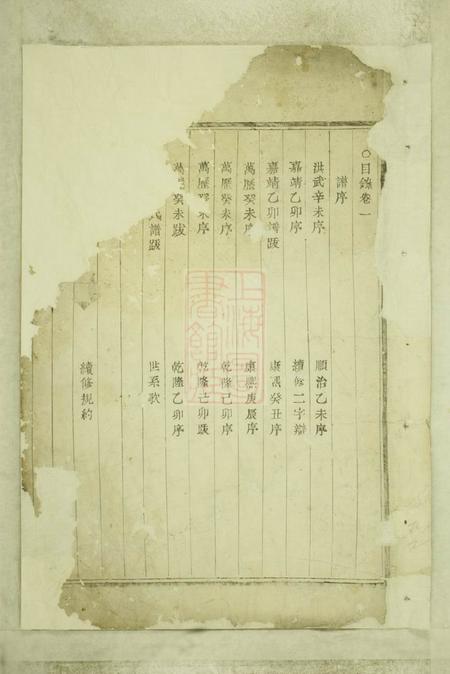 ○目錄卷一
譜序
洪武辛未序
順治乙未序
嘉靖乙卯序
續修二字辯
嘉靖乙卯譜跋
康熙癸丑序
萬曆癸未序
康熙庚辰序
萬曆癸未序
乾隆己卯序
萬曆癸未序
乾隆己卯跋
萬曆癸未跋
乾隆乙卯序
氏譜跋
世系歌
續修規約
上海圖書館藏